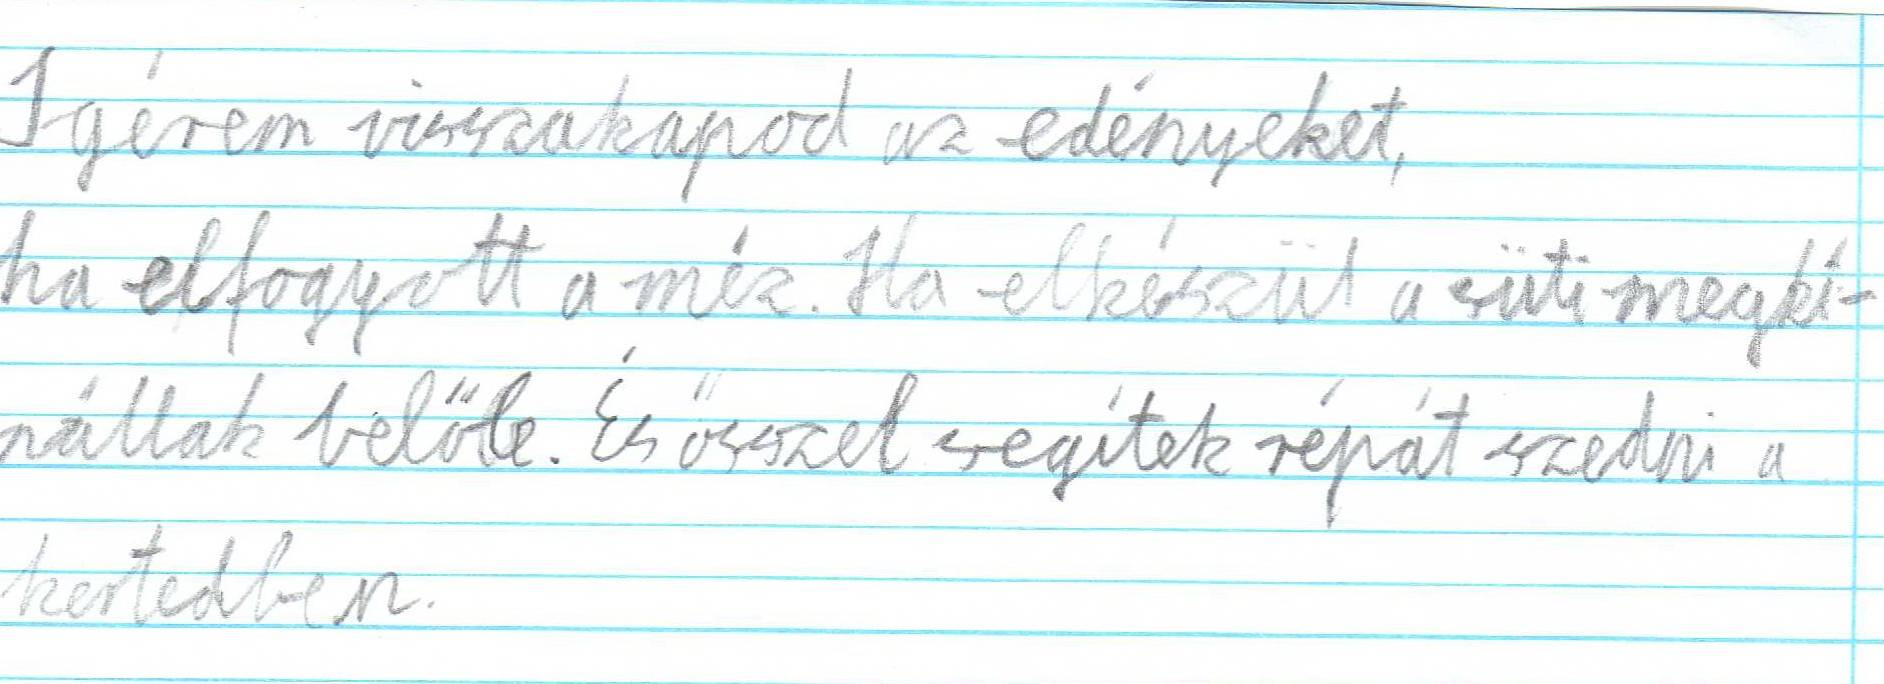 Igérem visszakapod az edényeket,
ha elfogyott a méz. Ha elkészül a süti megkí-
nállak belőle. És ősszel segítek répát szedni a
kertedben.